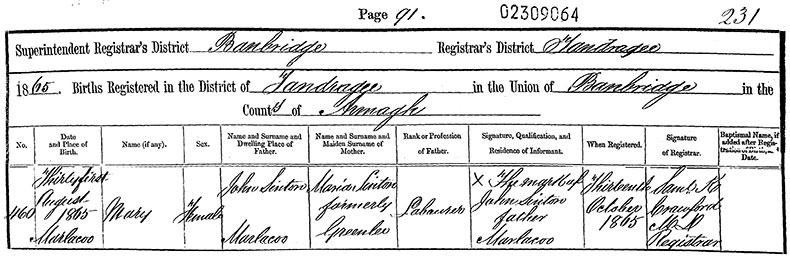 Page 91. 02309064 231
Superintendent Registrar's District Banbridge Registrar's District Tandragee
1865. Births Registered in the District of Tandragee in the Union of Banbridge in the
County of Armagh
No. Date and Place of Birth. Name (if any). Sex. Name and Surname and Dwelling Place of Father. Name and Surname and Maiden Surname of Mother. Rank or Profession of Father. Signature, Qualification, and Residence of Informant. When Registered. Signature of Registrar. Baptismal Name, if added after Registration of Birth, and Date.
460
Thirty first
August
1865
Marlacoo
Mary
Female
John Sinton
Marlacoo
Marian Sinton
formerly
Greenlee
Labourer
X The mark of
John Sinton
father
Marlacoo
Thirteenth
October
1865
Saml. K
Crawford
M.D
Registrar